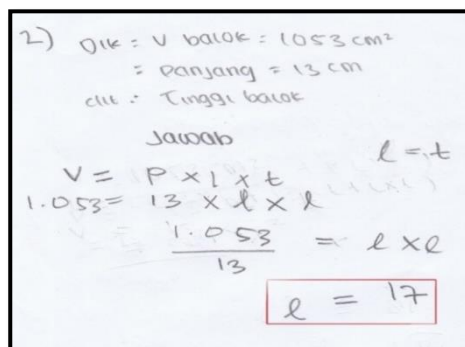 2) Dik = V balok = 1053 cm²
= Panjang = 13 cm
dit : Tinggi balok
Jawab
l = t
V = P x l x t
1.053 = 13 x l x l
1.053 / 13 = l x l
l = 17